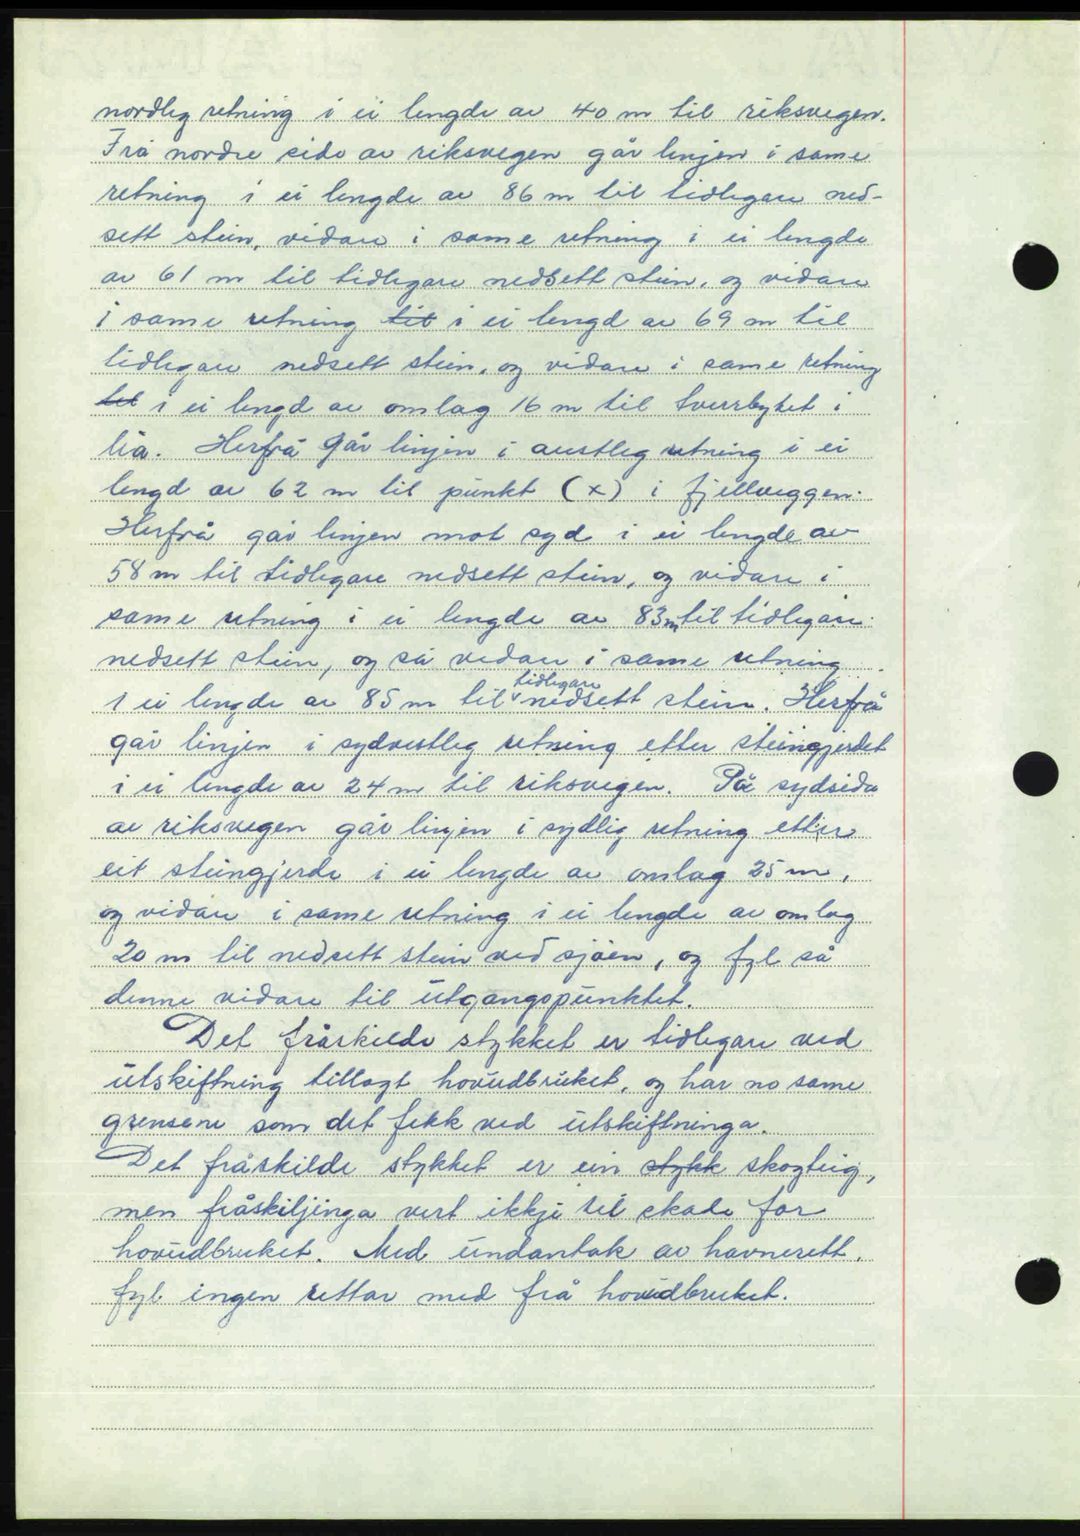 nordleg retning i ei lengde av 40 m til riksvegen.
Frå nordre side av riksvegen går linjen i same
retning i ei lengde av 86 m til tidlegare ned-
sett stein, vidare i same retning i ei lengde
av 61 m til tidlegare nedsett stein, og vidare
i same retning til i ei lengd av 69 m til
tidlegare nedsett stein, og vidare i same retning
til i ei lengd av omlag 16 m til tverrbytet i
lia. Herfrå går linjen i austleg retning i ei
lengd av 62 m til punkt (x) i fjellveggen.
Herfrå går linjen mot syd i ei lengde av
58 m til tidlegare nedsett stein, og vidare i
same retning i ei lengde av 83 m til tidlegare
nedsett stein, og så vidare i same retning
i ei lengde av 85 m til tidlegare nedsett stein. Herfrå
går linjen i sydvestleg retning etter steingjerdet
i ei lengde av 24 m til riksvegen. På sydsida
av riksvegen går linjen i sydlig retning etter
eit steingjerde i ei lengde av omlag 25 m,
og vidare i same retning i ei lengde av omlag
20 m til nedsett stein ved sjøen, og fyl så
denne vidare til utgangspunktet.
Det fråskilde stykket er tidlegare ved
utskiftning tillagt hovudbruket, og har no same
grensene som det fekk ved utskiftninga.
Det fråskilde stykket er ein stykk skogteig,
men fråskiljinga vert ikkje til skade for
hovudbruket. Med undantak av havnerett,
fyl ingen rettar med frå hovudbruket.